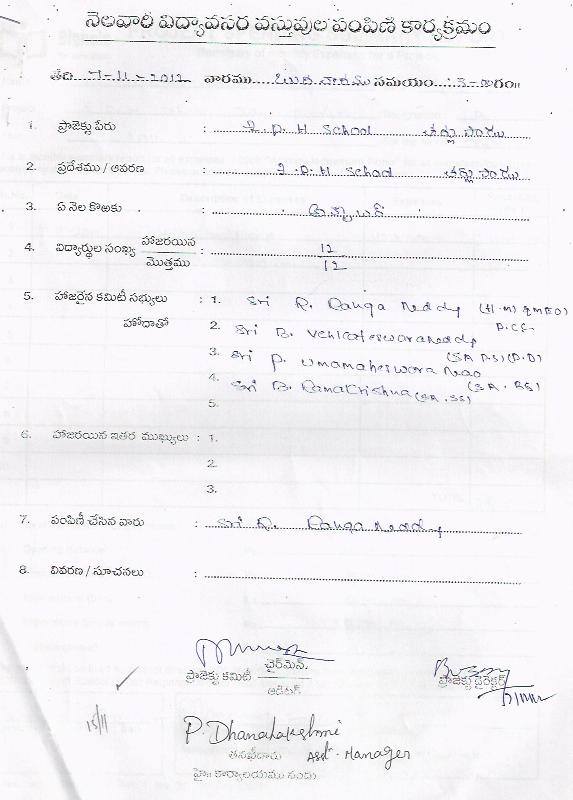 నెలవారీ విద్యావసర వస్తువుల పంపిణీ కార్యక్రమం
తేది 7-11-2012 వారము బుధవారము సమయం : 3-30 గం॥
1. ప్రాజెక్టు పేరు : Z.P.H School చర్లపాడు
2. ప్రదేశము / ఆవరణ : Z.P.H School చర్లపాడు
3. ఏ నెల కొఱకు : అక్టోబర్
4. విద్యార్థుల సంఖ్య హాజరయిన : 12
మొత్తము 12
5. హాజరైన కమిటీ సభ్యులు : 1. Sri R. Ranga Reddy (H.M) & MEO)
హోదాతో 2. Sri B. Venkateswarareddy
3. Sri P. Umamaheswara Rao (SA P.S) (P.D)
4. Sri B. Ramakrishna (SA. SS) (SA. BS)
5.
6. హాజరయిన ఇతర ముఖ్యులు : 1.
2.
3.
7. పంపిణీ చేసిన వారు : Sri R. Ranga Reddy
8. వివరణ / సూచనలు :
ప్రాజెక్టు కమిటీ ఛైర్మెన్.
ఆడిటర్
ప్రాజెక్టు డైరెక్టర్
15/11
P. Dhanalakshmi
తనిఖీదారు Asst. Manager
హై॥ కార్యాలయము నందు